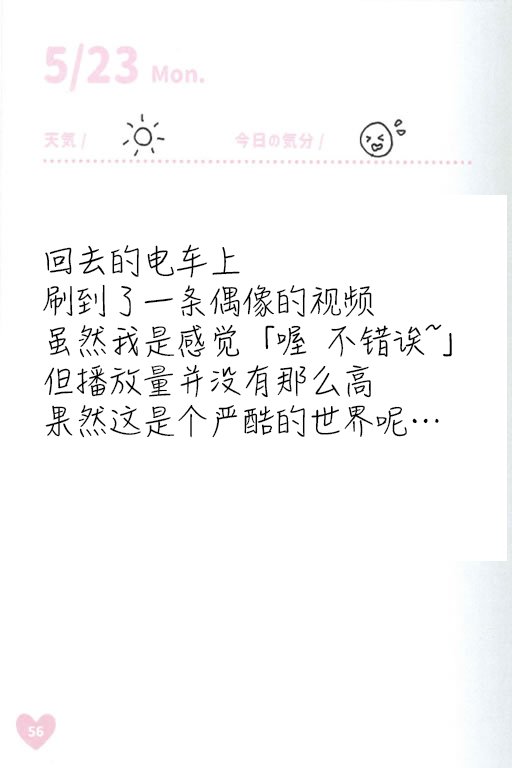 5/23 Mon.
天気/ 今日の気分/
回去的电车上
刷到了一条偶像的视频
虽然我是感觉「喔 不错诶~」
但播放量并没有那么高
果然这是个严酷的世界呢…
56